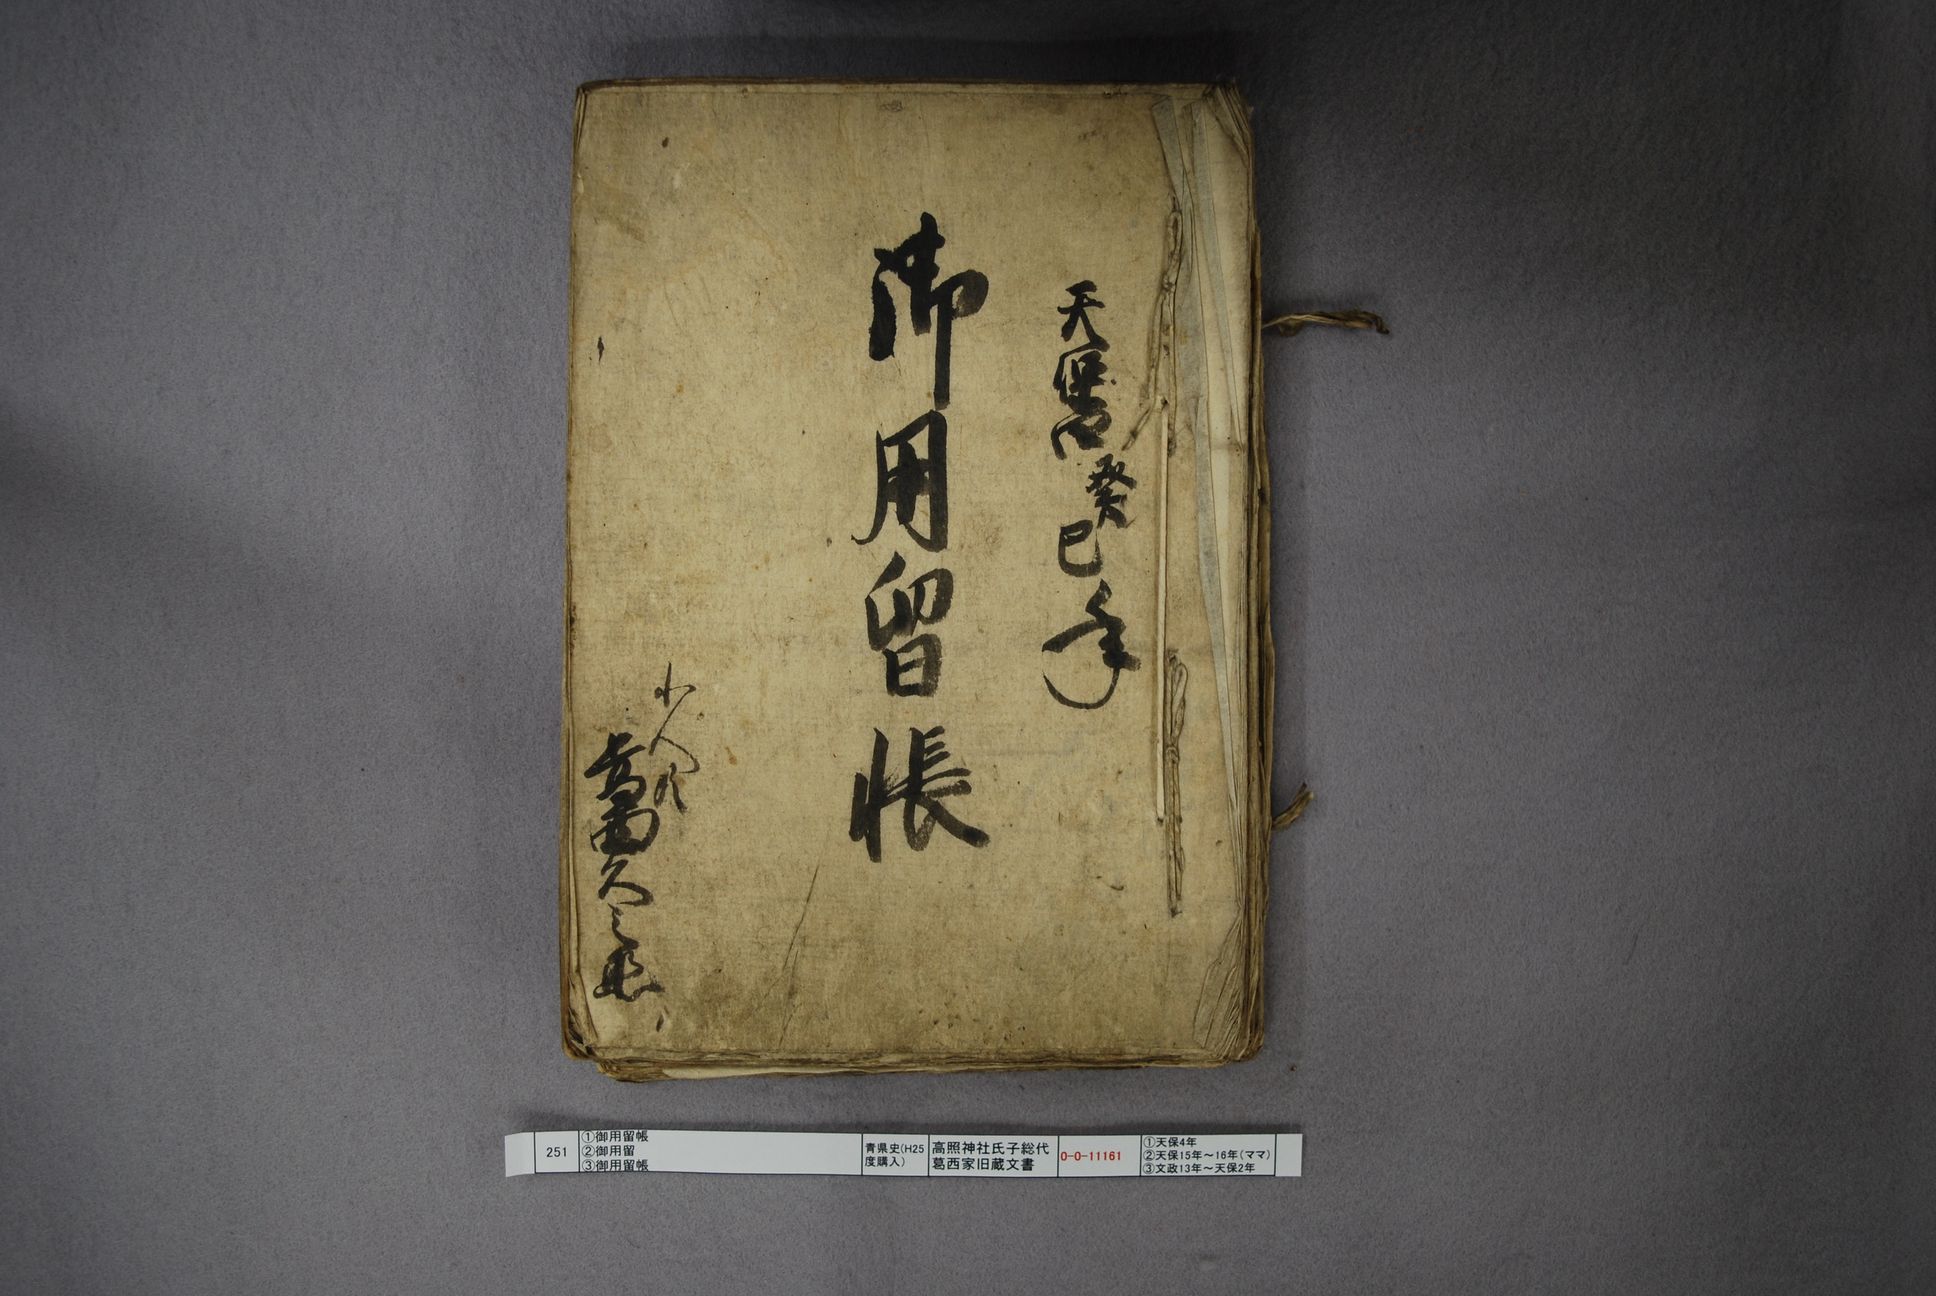 天保四癸巳年
御用留帳
葛西久之丞
251
①御用留帳
②御用留
③御用留帳
青県史(H25
度購入)
高照神社氏子総代
葛西家旧蔵文書
0-0-11161
①天保4年
②天保15年～16年(ママ)
③文政13年～天保2年